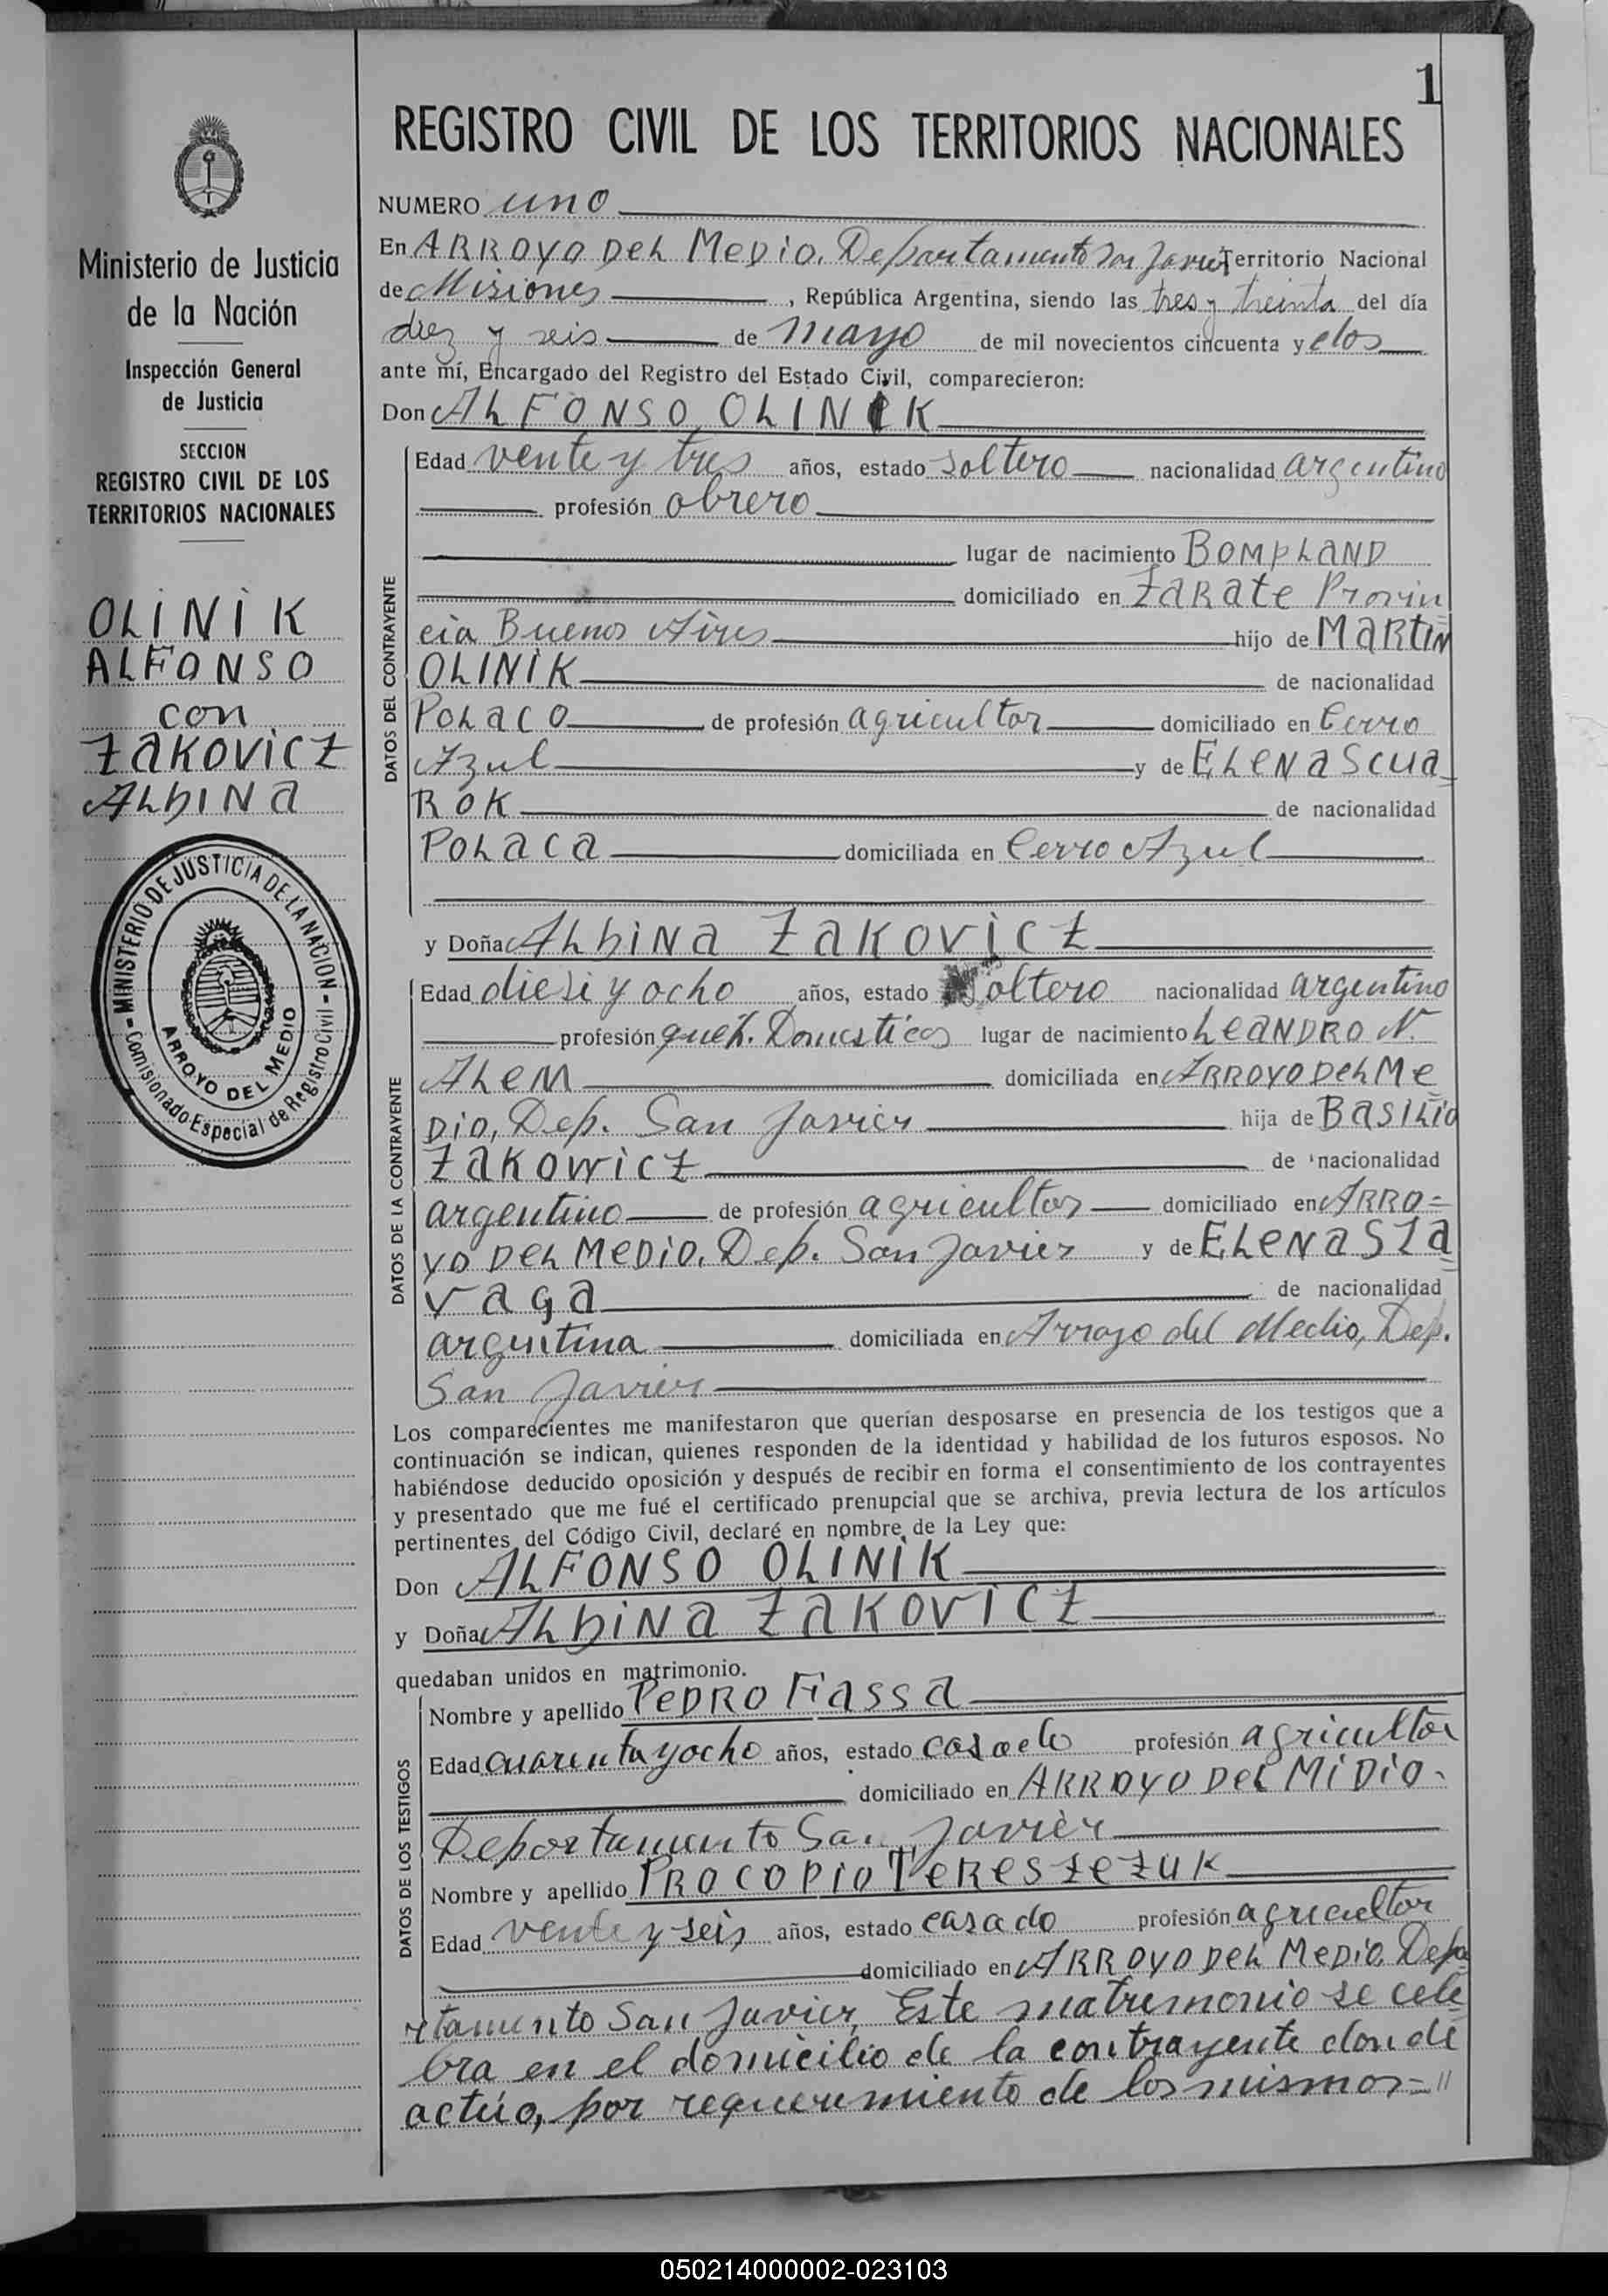 1
REGISTRO CIVIL DE LOS TERRITORIOS NACIONALES
Ministerio de Justicia
de la Nación
Inspección General
de Justicia
SECCION
REGISTRO CIVIL DE LOS
TERRITORIOS NACIONALES
OLINIK
ALFONSO
con
ZAKOVICZ
ALBINA
MINISTERIO DE JUSTICIA DE LA NACION
Comisionado Especial de Registro Civil
ARROYO DEL MEDIO
NUMERO uno
En ARROYO DEL MEDIO. Departamento San Javier Territorio Nacional
de Misiones, República Argentina, siendo las tres y treinta del día
diez y seis de mayo de mil novecientos cincuenta y dos
ante mí, Encargado del Registro del Estado Civil, comparecieron:
Don ALFONSO OLINIK
DATOS DEL CONTRAYENTE
Edad vente y tres años, estado soltero nacionalidad argentino
profesión obrero
lugar de nacimiento BOMPLAND
domiciliado en ZARATE Provin
cia Buenos Aires hijo de MARTIN
OLINIK de nacionalidad
POLACO de profesión agricultor domiciliado en Cerro
Azul y de ELENA SCUA
ROK de nacionalidad
POLACA domiciliada en Cerro Azul
y Doña ALBINA ZAKOVICZ
DATOS DE LA CONTRAYENTE
Edad diesi y ocho años, estado soltero nacionalidad argentino
profesión queh. Domesticos lugar de nacimiento LEANDRO N.
ALEM domiciliada en ARROYO DEL ME
DIO, Dep. San Javier hija de BASILIO
ZAKOWICZ de nacionalidad
argentino de profesión agricultor domiciliado en ARRO=
YO DEL MEDIO. Dep. San Javier y de ELENA SZA
VAGA de nacionalidad
argentina domiciliada en Arroyo del Medio, Dep.
San Javier
Los comparecientes me manifestaron que querían desposarse en presencia de los testigos que a
continuación se indican, quienes responden de la identidad y habilidad de los futuros esposos. No
habiéndose deducido oposición y después de recibir en forma el consentimiento de los contrayentes
y presentado que me fué el certificado prenupcial que se archiva, previa lectura de los artículos
pertinentes del Código Civil, declaré en nombre de la Ley que:
Don ALFONSO OLINIK
y Doña ALBINA ZAKOVICZ
quedaban unidos en matrimonio.
DATOS DE LOS TESTIGOS
Nombre y apellido PEDRO FIASSA
Edad cuarenta y ocho años, estado casado profesión agricultor
domiciliado en ARROYO DEL MIDIO-
Departamento San Javier
Nombre y apellido PROCOPIO TERESZEZUK
Edad vente y seis años, estado casado profesión agricultor
domiciliado en ARROYO DEL MEDIO. Depa
rtamento San Javier, Este matrimonio se cele
bra en el domicilio de la contrayente donde
actúo, por requerimiento de los mismos=//
050214000002-023103